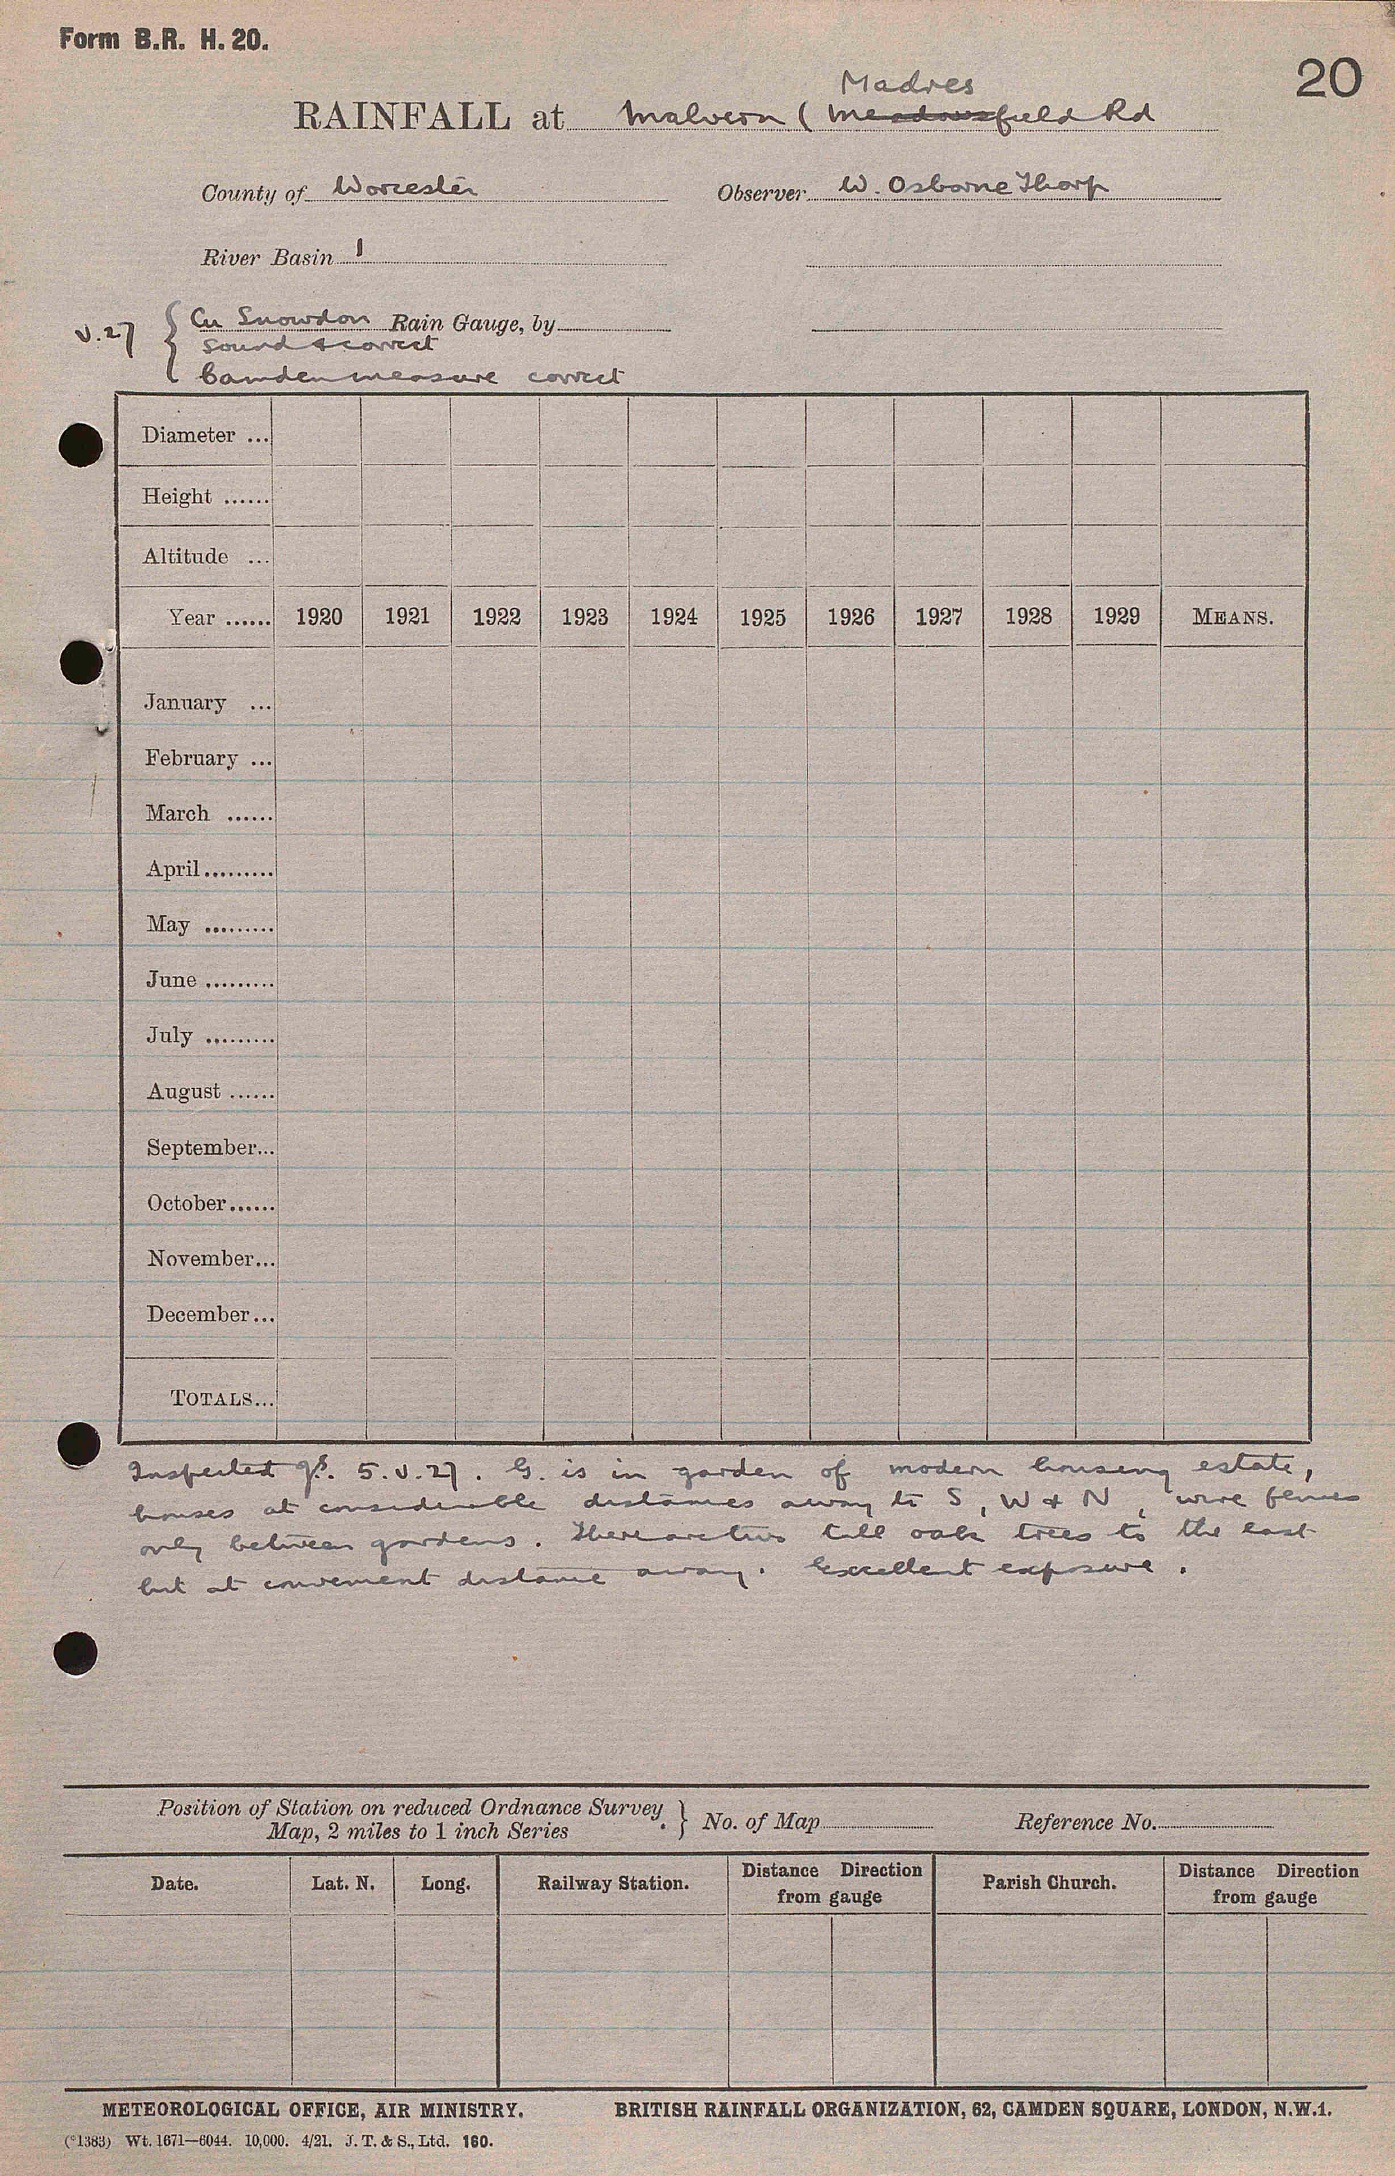 Form B.R. H. 20.
20
Madres
RAINFALL at Malvern ( Meadowsfield Rd
County of Worcester Observer W. Osborne Thorp
River Basin 1
V.27 { Cu Snowdon Rain Gauge, by
Sound & correct
Camden measure correct
Diameter ...
Height ......
Altitude ...
Year ...... 1920 1921 1922 1923 1924 1925 1926 1927 1928 1929 MEANS.
January ...
February ...
March ......
April.........
May .........
June .........
July .........
August ......
September...
October......
November...
December...
TOTALS...
Inspected 5.V.27. G. is in garden of modern housing estate,
houses at considerable distances away to S, W & N, wire fences
only between gardens. There are two tall oak trees to the east
but at convenient distance away. Excellent exposure.
Position of Station on reduced Ordnance Survey } No. of Map Reference No.
Map, 2 miles to 1 inch Series
Date. Lat. N. Long. Railway Station. Distance Direction from gauge Parish Church. Distance Direction from gauge
METEOROLOGICAL OFFICE, AIR MINISTRY. BRITISH RAINFALL ORGANIZATION, 62, CAMDEN SQUARE, LONDON, N.W.1.
(*1383) Wt. 1671—6044. 10,000. 4/21. J. T. & S., Ltd. 160.